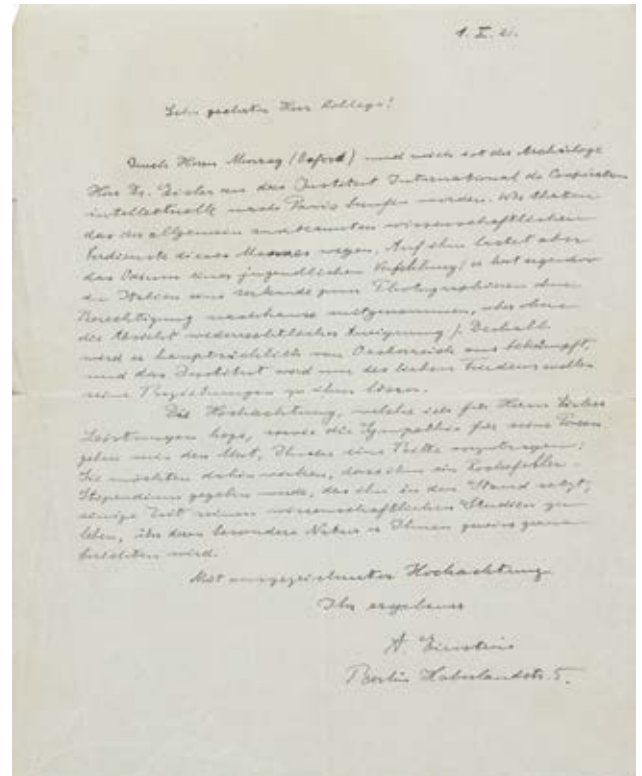 1. X. 26.
Sehr geehrter Herr Kollege!
Durch Herrn Murray (Oxford) und mich ist der Archäologe
Herr Dr. Eisler an das Institut International de Coopération
intellectuelle nach Paris berufen worden. Wir thaten
das der allgemein anerkannten wissenschaftlichen
Verdienste dieses Mannes wegen. Auf ihm lastet aber
das Odium einer jugendlichen Verfehlung (er hat irgendwo
in Italien eine Urkunde zum Photographieren ohne
Berechtigung nachhause mitgenommen, aber ohne
die Absicht widerrechtlicher Aneignung). Deshalb
wird er hauptsächlich von Oesterreich aus bekämpft,
und das Institut wird um des lieben Friedens willen
seine Beziehungen zu ihm lösen.
Die Hochachtung, welche ich für Herrn Eislers
Leistungen hege, sowie die Sympathie für seine Person
geben mir den Mut, Ihnen eine Bitte vorzutragen:
Sie möchten dahin wirken, dass ihm ein Rockefeller-
Stipendium gegeben werde, das ihn in den Stand setzt,
einige Zeit seinen wissenschaftlichen Studien zu
leben, über deren besondere Natur er Ihnen gewiss gerne
berichten wird.
Mit ausgezeichneter Hochachtung
Ihr ergebener
A. Einstein
Berlin Haberlandstr. 5.